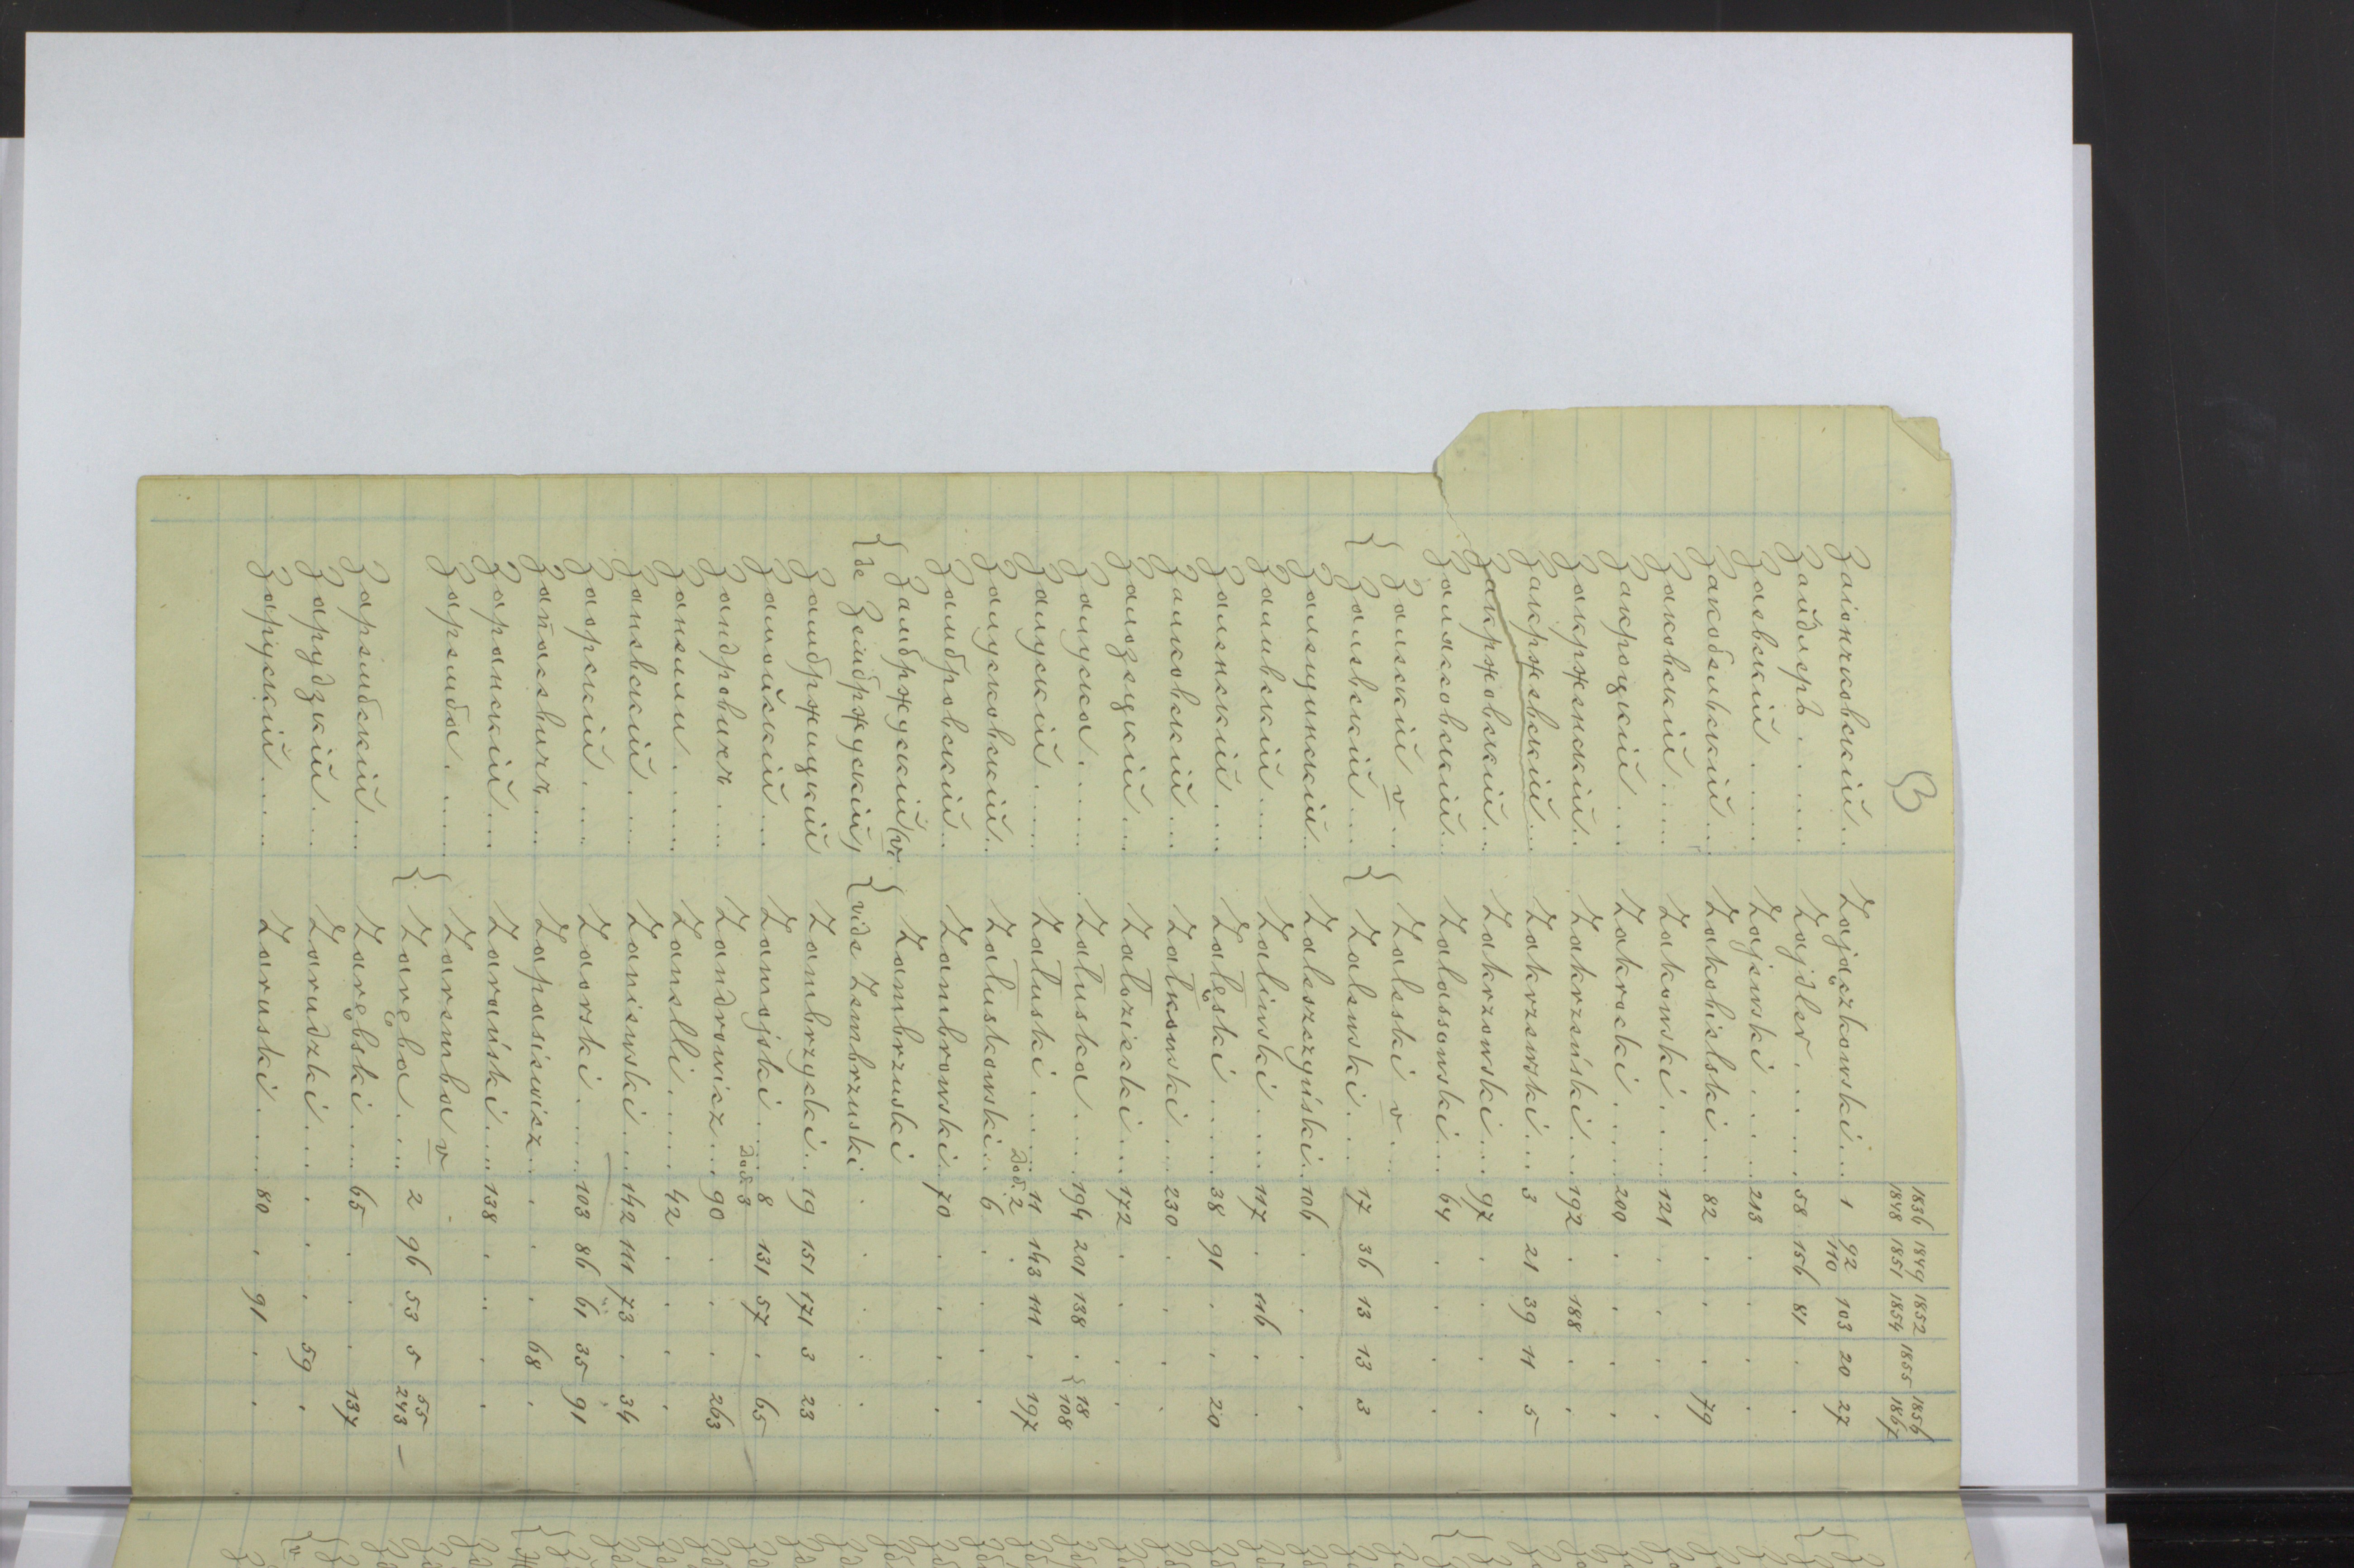 З
1836 1849 1852 1855 1856
1848 1851 1854 1867
Заіончковскій .. Zajączkowski ... 1 92 103 20 27
110
Зайдлеръ ..... Zajdler ..... 58 156 81 . .
Заевскій ..... Zajewski .... 213 . . . .
Закобельскій ... Zakobielski ... 82 . . . 79
Заковскій .... Zakowski .... 121 . . . .
Закроцкій ... Zakrocki .... 200 . . . .
Закрженскій .. Zakrzeński ... 192 . 188 . .
Закржевскій ... Zakrzewski ... 3 21 39 11 5
Закржовскій .. Zakrzowski ... 97 . . . .
Залассовскій .. Zalassowski ... 64 . . . .
{ Залескій v ... { Zaleski v ...
Залевскій ... Zalewski ... 17 36 13 13 3
Залещинскій .. Zaleszczyński .. 106 . . . .
Заливскій .... Zaliwski .... 117 . 116 . .
Заленскій .... Załęski .... 38 91 . . 20
Залковскій ... Załkowski ... 230 . . . .
Залозецкій ... Załoziecki ... 172 . . . .
Залуска ..... Załuska .... 194 201 138 . { 18
108
Залускій .... Załuski .... 11 143 111 . 197
Dod. 2
Залусковскій .. Załuskowski .. 6 . . . .
Замбровскій .. Zambrowski .. 70 . . . .
{ Замбржускій (v. { Zambrzuski
{ de Зембржускій) { vide Zembrzuski . . . . .
Замбржицкій Zambrzycki .. 19 151 171 3 23
Замойскій ... Zamojski .... 8 131 57 . 65
Dod. 3
Зандровичъ .... Zandrowicz ... 90 . . . 263
Занелли ..... Zanelli .... 42 . . . .
Заневскій .... Zaniewski ... 142 111 73 . 34
Заорскій .... Zaorski .... 103 86 61 35 91
Запасевичъ ... Zapasiewicz ... . . . 68 .
Заранскій ... Zarański ... 138 . . . .
Заремба ..... { Zaremba v
Zaręba .... 2 96 53 5 55
243 —
Зарембскій ... Zarębski ... 65 . . . 137
Зарудзкій ... Zarudzki ... . . . 59 .
Зарускій .... Zaruski .... 80 . 91 . .